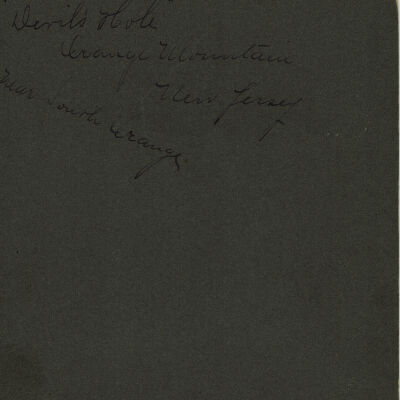 Devil's Hole
Orange Mountain
New Jersey
Near South Orange